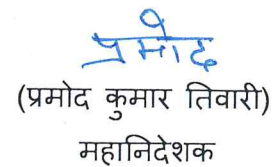 प्रमोद
(प्रमोद कुमार तिवारी)
महानिदेशक